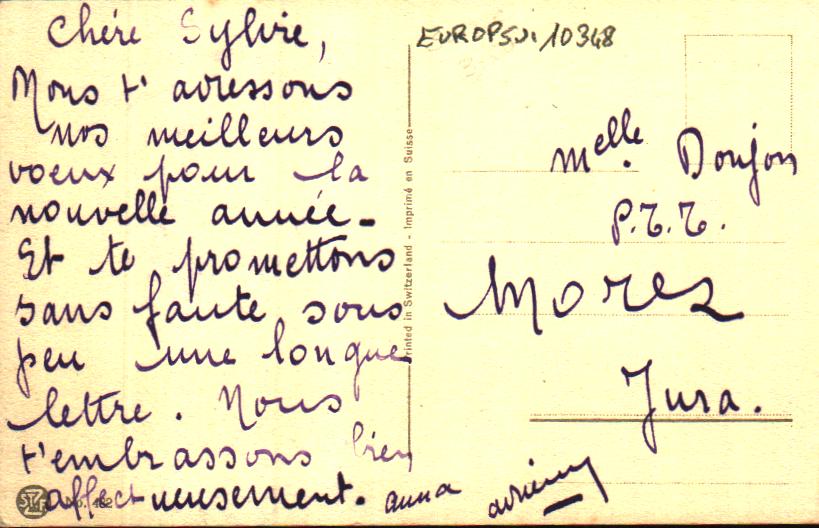 Chére Sylvie,
Nous t'adressons
nos meilleurs
voeux pour la
nouvelle année -
Et te promettons
sans faute sous
peu une longue
lettre. Nous
t'embrassons bien
affectueusement. anna
No. 482
Printed in Switzerland - Imprimé en Suisse
EUROPSUI 10348
Melle Donjon
P.T.T.
Morez
Jura.